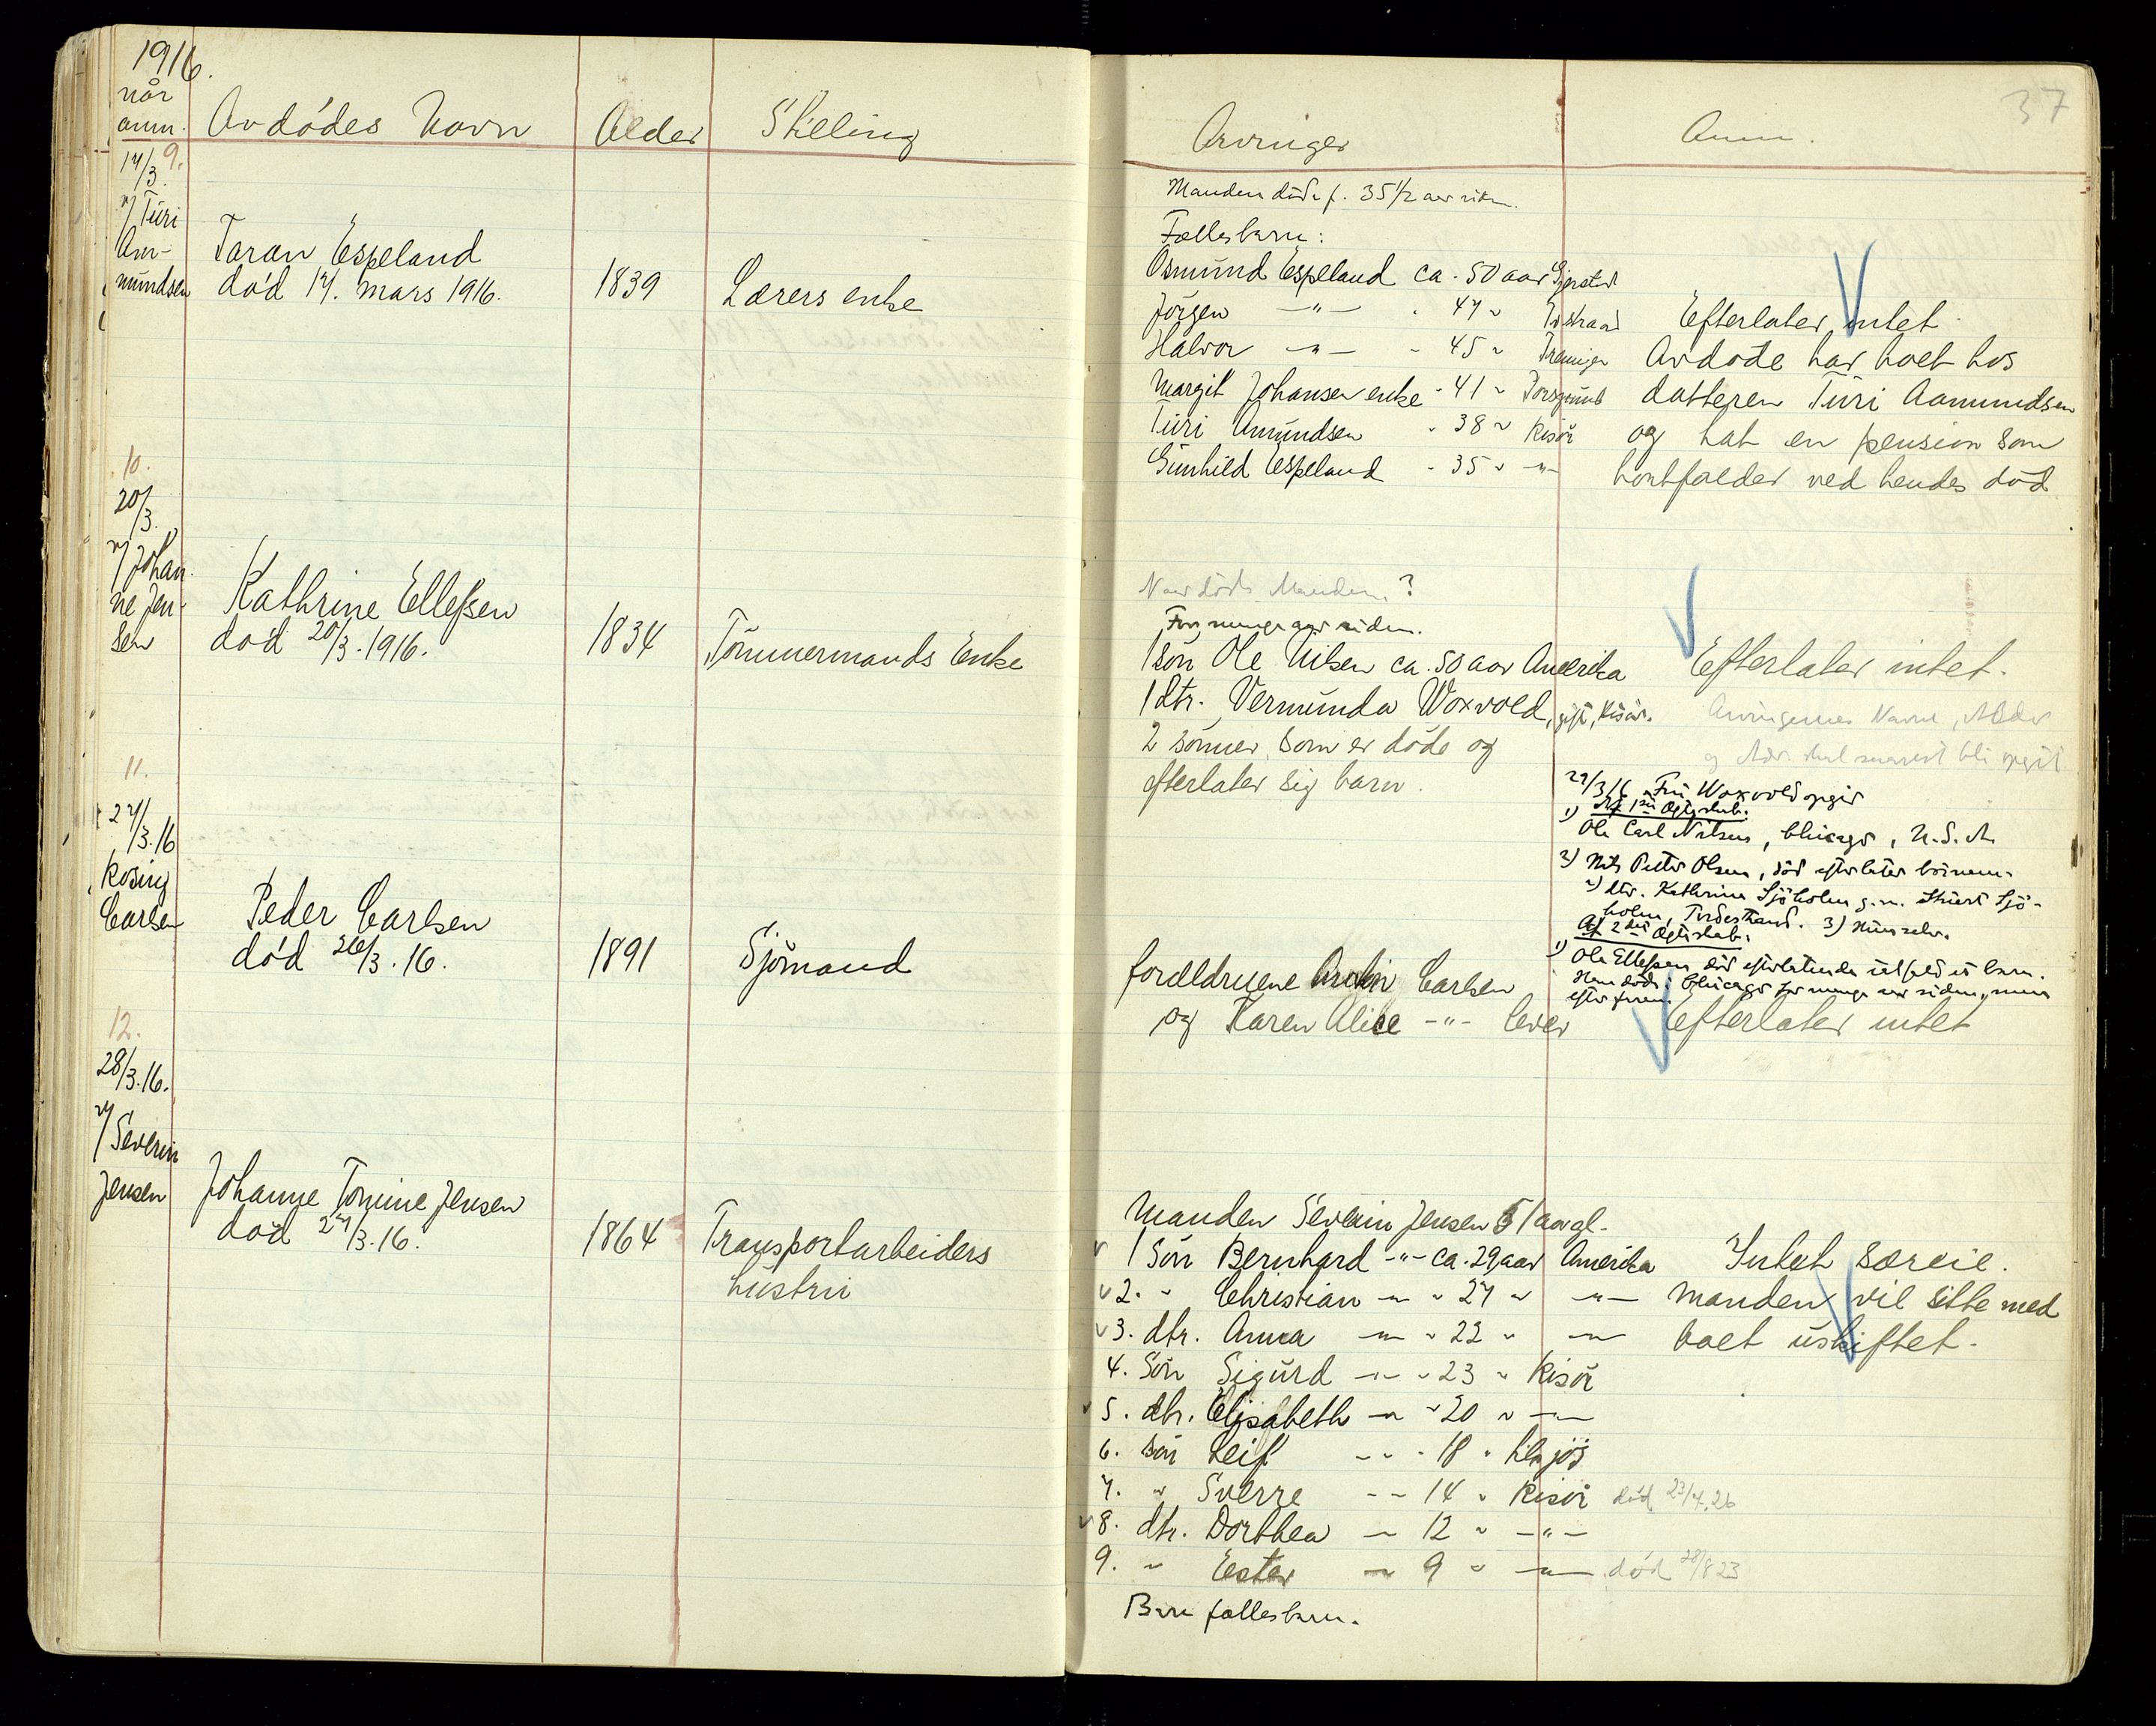 1916.
når
anm.
Avdødes Navn
Alder
Stilling
9.
17/3.
v/ Turi
Am-
mundsen
Taran Espeland
død 17. mars 1916.
1839
Lærers enke
10.
20/3.
v/ Johan
ne Jen-
sen
Kathrine Ellefsen
død 20/3.1916.
1834
Tømmermands Enke
11.
27/3.16
Rosing
Carlsen
Peder Carlsen
død 26/3.16.
1891
Sjømand
12.
28/3.16.
v/ Severin
Jensen
Johanne Tomine Jensen
død 27/3.16.
1864
Transportarbeiders
hustru
37
Arvinger
Anm.
Manden døde f. 35 1/2 aar siden.
Fællesbarn:
Osmund Espeland ca. 50 aar Gjerstad
Jørgen —"— . 47 "
Halvor —"— - 45 "
Margit Johansen enke - 41 " Porsgrund
Turi Amundsen - 38 " Risør
Gunhild Espeland - 35 " —"—
Efterlater intet
Avdøde har boet hos
datteren Turi Aamundsen
og hat en pension som
bortfalder ved hendes død
Naar døde Manden?
For mange aar siden.
1 søn Ole Nilsen ca. 50 aar Amerika
1 dtr. Vermunda Woxvold, gift, Risør.
2 sønner som er døde og
efterlater sig barn.
Efterlater intet.
Arvingernes Navne, Alder
og Adr. skal snarest bli opgit
29/3 16 Fru Woxvold opgir
Af 1ste Ægteskab.
1) Ole Carl Nilsen, Chicago, U.S.A.
2) Nils Peder Olsen, død efterlater
dtr. Kathrine Sjøholm g.m. Sjø-
holm, Tvedestrand. 3) Hun selv.
Af 2det Ægteskab.
1) Ole Ellefsen død efterlatende et barn.
Han døde i Chicago for mange aar siden
forældrene Carlsen
og Karen Alice —"— lever
Efterlater intet
Manden Severin Jensen 51 aar gl.
1 Søn Bernhard —"— ca. 29 aar Amerika
2. " Christian —"— " 27 " —"—
3. dtr. Anna —"— " 22 " —"—
4. Søn Sigurd —"— " 23 " Risør
5. dtr. Elisabeth —"— " 20 " —"—
6. søn Leif —"— " 18 " tilsjøs
7. " Sverre —"— 14 " Risør død 23/4.26
8. dtr. Dorthea —"— 12 " —"—
9. " Ester —"— 9 " —"— død 28/8 23
Bare fællesbarn.
Intet særeie.
Manden vil sitte med
boet uskiftet.